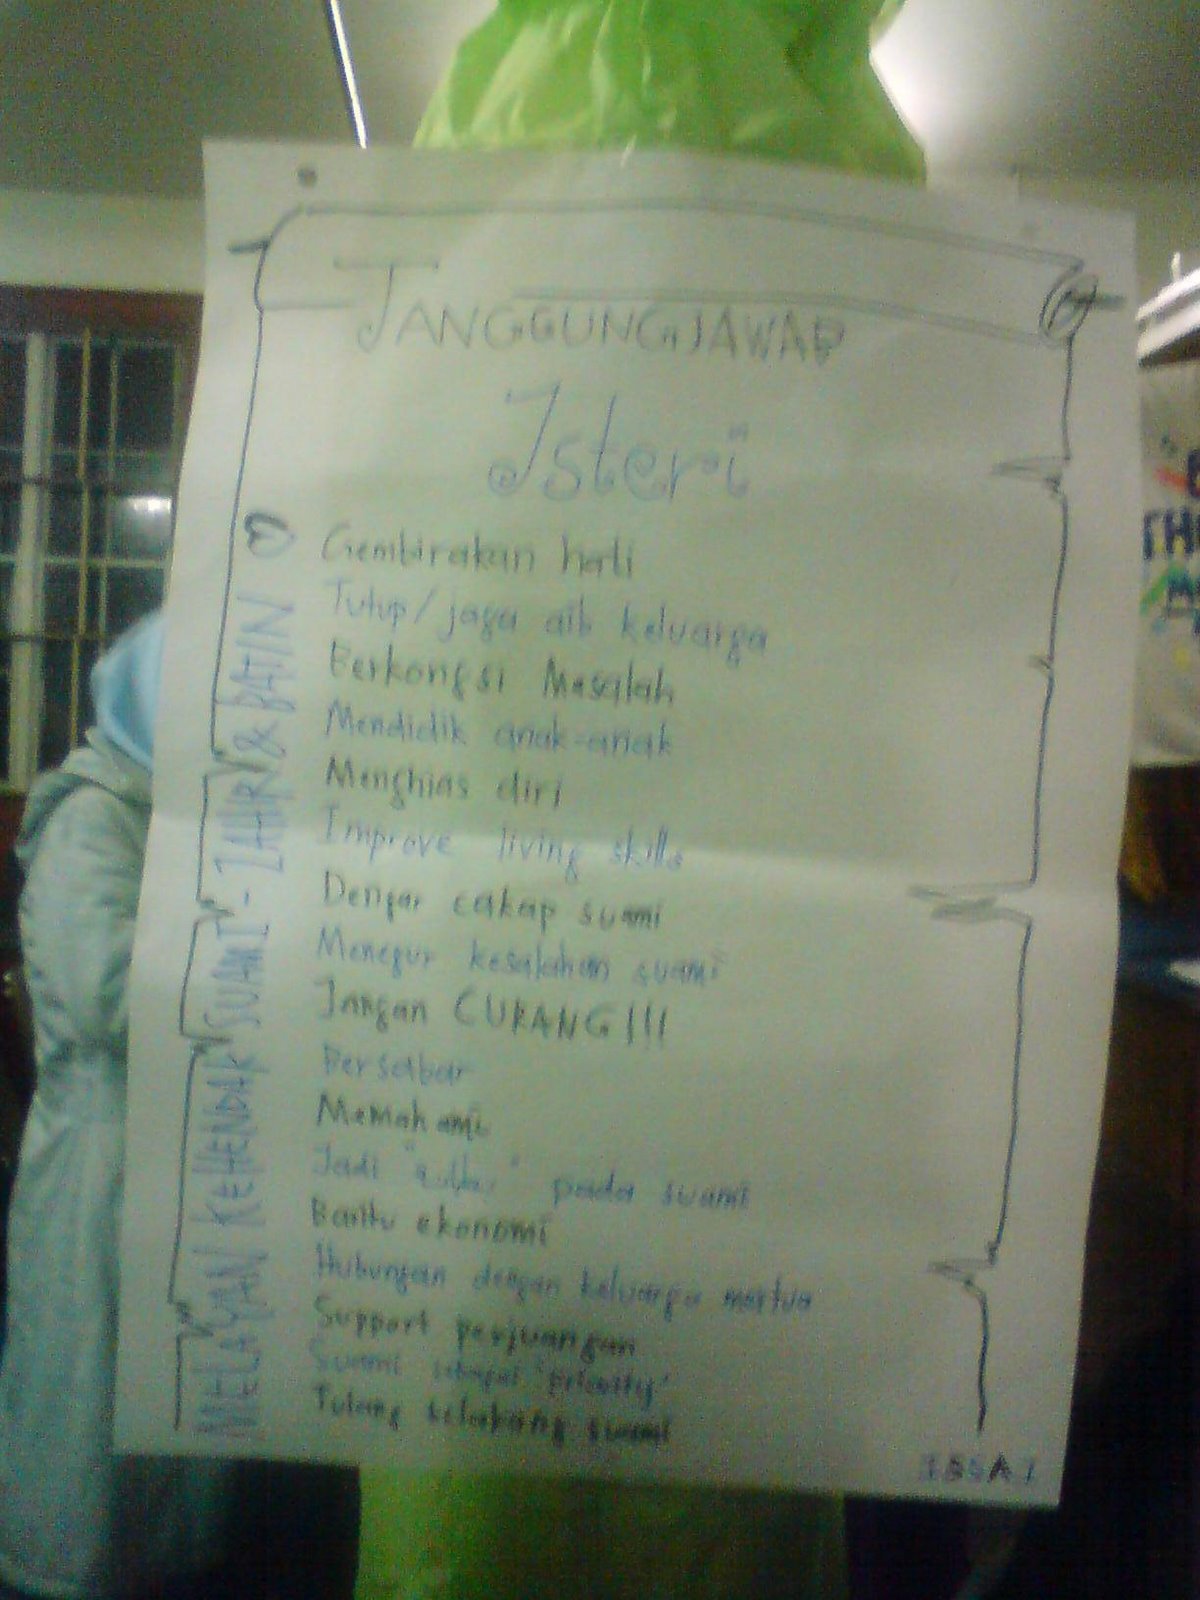 TANGGUNGJAWAB
Isteri
Gembirakan hati
Tutup/jaga aib keluarga
Berkongsi Masalah
Mendidik anak-anak
Menghias diri
Improve living skills
Dengar cakap suami
Menegur kesalahan suami
Jangan CURANG!!!
Bersabar
Memahami
Jadi pada suami
Bantu ekonomi
Hubungan dengan keluarga mertua
Support perjuangan
Suami sebagai "priority"
Tulang belakang suami
MELAYAN KEHENDAK SUAMI - ZAHIR & BATIN
TH